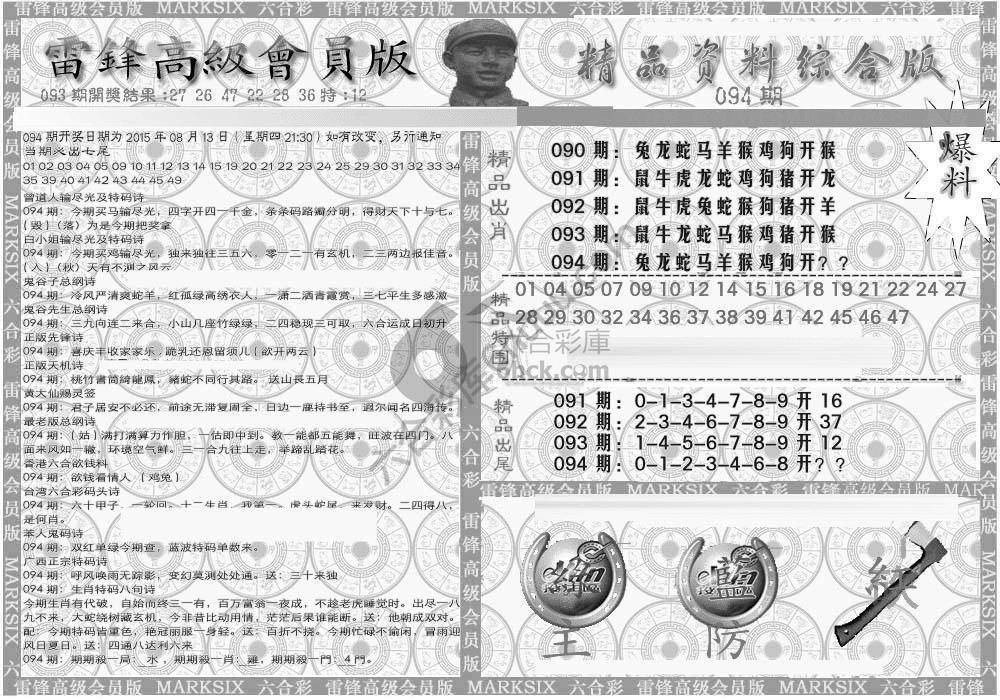 雷锋高级会员版 MARKSIX 六合彩 雷锋高级会员版 MARKSIX 六合彩 雷锋高级会员版 MARKSIX 六合彩 雷锋高级会员版
雷鋒高級會員版
精品资料综合版
093期開獎結果:27 26 47 22 28 36特:12
094期
094 期开奖日期为 2015 年 08 月 13 日 ( 星期四 21:30 ) 如有改变，另行通知
当期必出七尾
01 02 03 04 05 09 10 11 12 13 14 15 19 20 21 22 23 24 25 29 30 31 32 33 34
35 39 40 41 42 43 44 45 49
曾道人输尽光及特码诗
094 期：今期买马输尽光，四字开四一千金，条条码路瓣分明，得财天下十与七。
{ 毁 }（落）为是今期把奖拿
白小姐输尽光及特码诗
094 期：今期买鸡输尽光，独来独往三五六，零一二一有玄机，二三两边报佳音。
{ 人 }（秋）天有不测之风云
鬼谷子总纲诗
094 期：冷风严清爽蛇羊，红孤绿高绣衣人，一潇二洒青霞赏，三七平生多感激
鬼谷先生总纲诗
094 期：三九向连二来合，小山几座竹绿绿，二四稳现三可取，六合运成日初升
正版先锋诗
094 期：喜庆丰收家家乐，跪乳还恩留须儿 { 欲开两云 }
正版天机诗
094 期：桃竹書筒綺龍鳳，豬蛇不同行其路。送山長五月
黄大仙赐灵签
094 期：君子居安不必还，前途无滞复周全，日边一麾持书至，遐尔闻名四海传。
最老版总纲诗
094 期：{ 姑 } 满打满算力作胆，一估即中到。教一能都五能舞，旺波在四门。八
面来风如一辙，环境空气鲜。三一合九往上走，举蹄乱踏花。
香港六合欲钱料
094 期：欲钱看情人 （鸡兔）
台湾六合彩码头诗
094 期：六十甲子，一轮回。十二生肖，我第一。虎头蛇尾，来发财。二四得八，
是何肖。
苯人鬼码诗
094 期：双红单绿今期查，蓝波特码单数来。
广西正宗特码诗
094 期：呼风唤雨无踪影，变幻莫测处处通。送：三十来独
094 期：生肖特码八句诗
今期生肖有代破，自始而终三一有，百万富翁一夜成，不趁老虎睡觉时。出尽一八
九不来，大蛇绕树藏玄机，今非昔比动用情，茫茫后果谁能断。送：他朝成双对。
配：今期特码皆重色，艳冠丽服一身轻。送：百折不挠。今期忙碌不偷闲，冒雨迎
风日夏日。送：四通八达利六来
094 期：期期殺一局：水，期期殺一肖：雞，期期殺一門：4 門。
精品出肖
090 期：兔龙蛇马羊猴鸡狗开猴
091 期：鼠牛虎龙蛇鸡狗猪开龙
092 期：鼠牛虎兔蛇猴狗猪开羊
093 期：鼠牛龙蛇马猴鸡猪开猴
094 期：兔龙蛇马羊猴鸡狗开？？
爆料
精品特围
01 04 05 07 09 10 12 14 15 16 18 19 21 22 24 27
28 29 30 32 34 36 37 38 39 41 42 45 46 47
精品出尾
091 期：0-1-3-4-7-8-9 开 16
092 期：2-3-4-6-7-8-9 开 37
093 期：1-4-5-6-7-8-9 开 12
094 期：0-1-2-3-4-6-8 开？？
雷锋高级会员版 MARKSIX 六合彩 雷锋高级会员版
主 防 紅
雷锋高级会员版 MARKSIX 六合彩 雷锋高级会员版 MARKSIX 六合彩 雷锋高级会员版 MARKSIX 六合彩 雷锋高级会员版